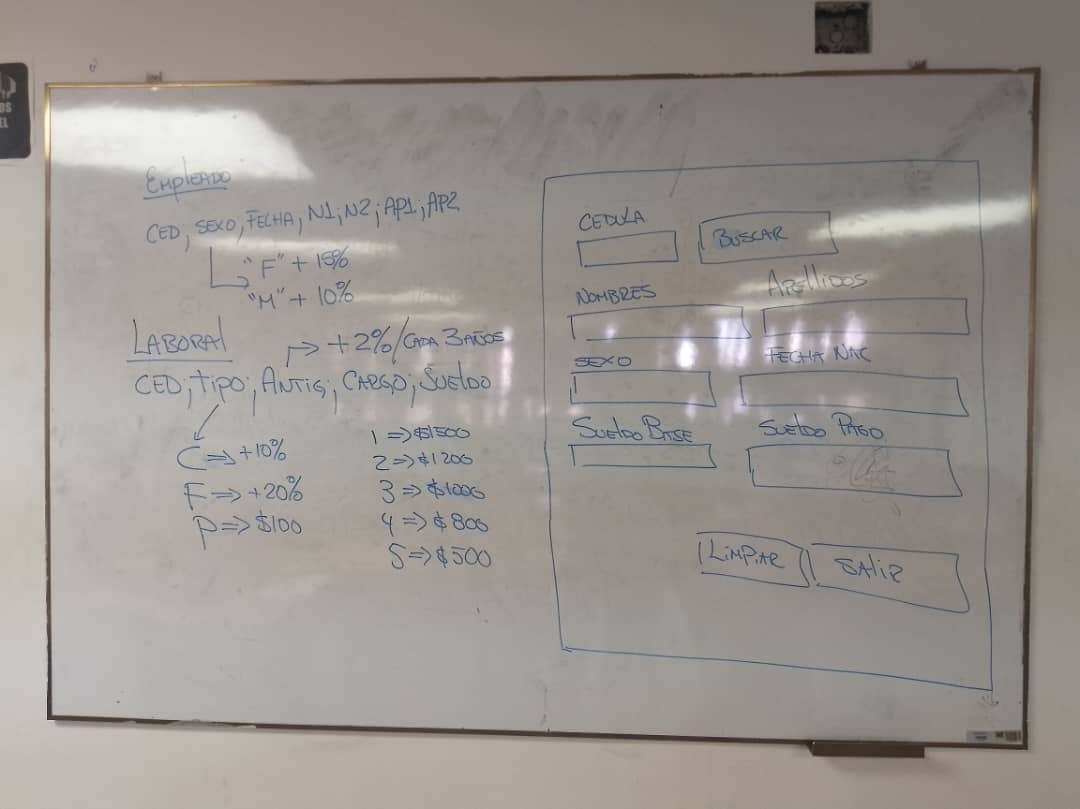 EMPLEADO
CED, SEXO, FECHA, N1, N2, AP1, AP2
"F" + 15%
"M" + 10%
LABORAL
+2%/CADA 3 AÑOS
CED; TIPO; ANTIG; CARGO, SUELDO
C => +10%
F => +20%
P => $100
1 => $1500
2 => $1200
3 => $1000
4 => $800
5 => $500
CEDULA
BUSCAR
NOMBRES
APELLIDOS
SEXO
FECHA NAC
SUELDO BASE
SUELDO PAGO
LIMPIAR
SALIR